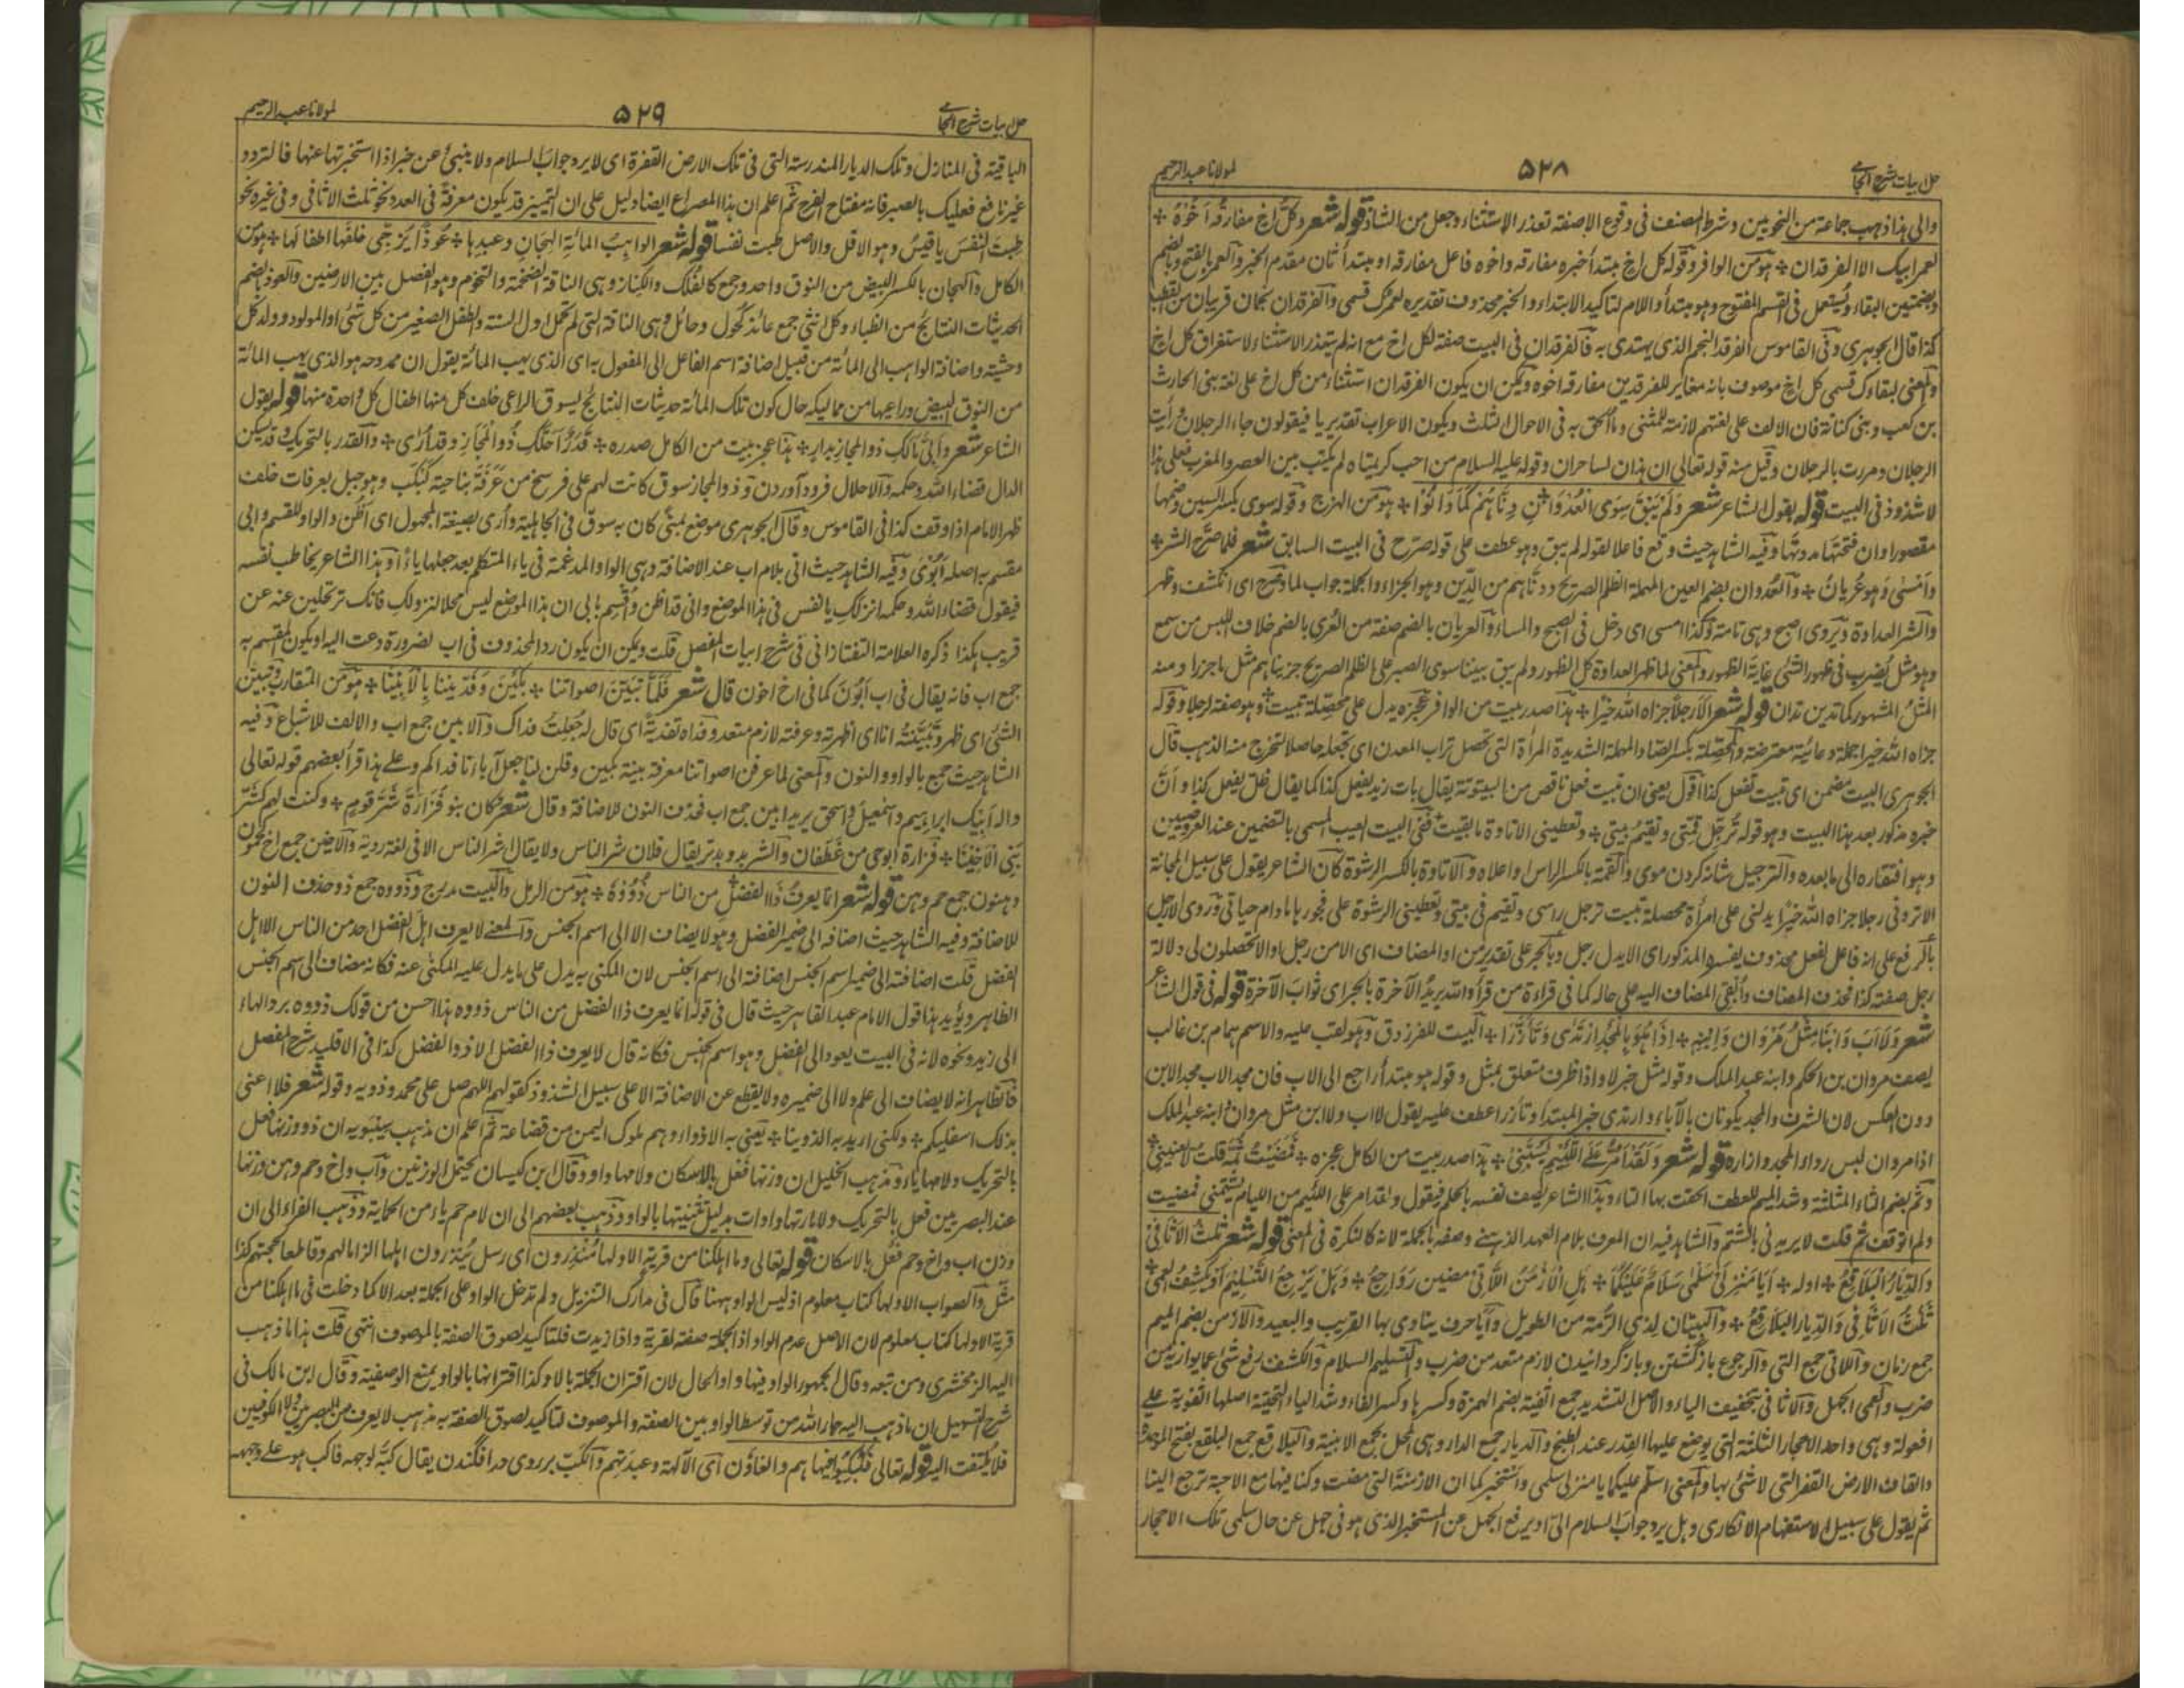 حل ابیات شرح الجامی ۵۲۸ لمولانا عبد الرحیم
والی هذا ذهب جماعة من النحویین وشرط المصنف فی وقوع الا صفة تعذر الاستثناء وجعل من الشاذ قوله شعر وکل اخ مفارقه اخوه
لعمر ابیک الا الفرقدان هو من الوافر وقوله کل اخ مبتدأ خبره مفارقه واخوه فاعل مفارقه او مبتدأ ثان مقدم الخبر والعمر بالفتح وبالضم
وبضمتین البقاء ویستعمل فی القسم المفتوح وهو مبتدأ واللام لتاکید الابتداء والخبر محذوف تقدیره لعمرک قسمی والفرقدان نجمان قریبان من القطب
کذا قال الجوهری وفی القاموس الفرقد النجم الذی یهتدی به فالفرقدان فی البیت صفة لکل اخ مع انه لم یتعذر الاستثناء لاستغراق کل اخ
والمعنی لبقاءک قسمی کل اخ موصوف بانه مغایر للفرقدین مفارقه اخوه ویمکن ان یکون الفرقدان استثناء من کل اخ علی لغة بنی الحارث
بن کعب وبنی کنانة فان الالف علی لغتهم لازمة للمثنی وما الحق به فی الاحوال الثلث ویکون الاعراب تقدیریا فیقولون جاء الرجلان ورأیت
الرجلان ومررت بالرجلان وقیل منه قوله تعالی ان هذان لساحران وقوله علیه السلام من احب کریمتاه لم یکتب بین العصر والمغرب فعلی هذا
لا شذوذ فی البیت قوله یقول الشاعر شعر ولم یبق سوی العدوان دناهم کما دانوا هو من الهزج وقوله سوی بکسر السین وضمها
مقصورا وان فتحتها مدتها وفیه الشاهد حیث وقع فاعلا لقوله لم یبق وهو عطف علی قوله صرح فی البیت السابق شعر فلما صرح الشر
وامسی وهو عریان والعدوان بضم العین المهملة الظلم الصریح ودناهم من الدین وهو الجزاء والجملة جواب لما وصرح ای انکشف وظهر
والشر العداوة ویروی اصبح وهی تامة وکذا امسی ای دخل فی الصبح والمساء والعریان بالضم صفة من العری بالضم خلاف اللبس من سمع
وهو مثل یضرب فی ظهور الشئ غایة الظهور والمعنی لما ظهر العداوة کل الظهور ولم یبق بیننا سوی الصبر علی الظلم الصریح جزیناهم مثل ما جزوا ومنه
المثل المشهور کما تدین تدان قوله شعر الا رجلا جزاه الله خیرا هذا صدر بیت من الوافر عجزه یدل علی محصلة تبیت وهو صفة لرجلا وقوله
جزاه الله خیرا جملة دعائیة معترضة والمحصلة بکسر الصاد المهملة الشدیدة المرأة التی تحصل تراب المعدن ای تجعله حاصلا لتخرج منه الذهب قال
الجوهری البیت مضمن ای تبیت تفعل کذا اقول یعنی ان تبیت فعل ناقص من البیتوتة یقال بات زید یفعل کذا کما یقال ظل یفعل کذا وان
خبره مذکور بعد هذا البیت وهو قوله ترجل لمتی وتقیم بیتی وتعطینی الاتاوة ما بقیت ففی البیت العیب المسمی بالتضمین عند العروضیین
وهو افتقاره الی ما بعده والترجیل شانه کردن موی والقمة بالکسر الراس واعلاه والاتاوة بالکسر الرشوة کان الشاعر یقول علی سبیل المجانة
الا ترونی رجلا جزاه الله خیرا یدلنی علی امرأة محصلة تبیت ترجل راسی وتقیم فی بیتی وتعطینی الرشوة علی فجورها مادام حیاتی ویروی الا رجل
بالرفع علی انه فاعل لفعل محذوف یفسره المذکور ای الا یدل رجل وبالجر علی تقدیر من او المضاف ای الا من رجل او الا تحصلون لی دلالة
رجل صفته کذا فحذف المضاف وابقی المضاف الیه علی حاله کما فی قراءة من قرأ والله یرید الآخرة بالجر ای ثواب الآخرة قوله فی قول الشاعر
شعر ولا اب وابنا مثل مروان وابنه اذا هو بالمجد ارتدی وتأزرا البیت للفرزدق وهو لقب علیه والاسم همام بن غالب
یصف مروان بن الحکم وابنه عبد الملک وقوله مثل خبر لا واذا ظرف متعلق بمثل وقوله هو مبتدأ راجع الی الاب فان مجد الاب مجد الابن
دون العکس لان الشرف والمجد یکونان بالآباء وارتدی خبر المبتدأ وتأزرا عطف علیه یقول لا اب ولا ابن مثل مروان وابنه عبد الملک
اذا مروان لبس رداء المجد وازاره قوله شعر ولقد امر علی اللئیم یسبنی هذا صدر بیت من الکامل عجزه فمضیت ثمه قلت لا یعنینی
وثم بضم الثاء المثلثة وشد المیم للعطف الحقت بها التاء وهذا الشاعر یصف نفسه بالحلم فیقول ولقد امر علی اللئیم من اللیام یشتمنی فمضیت
ولم اتوقف ثم قلت لا یریدنی بالشتم والشاهد فیه ان المعرف بلام العهد الذهنی وصفه بالجملة لانه کالنکرة فی المعنی قوله شعر ثلث الاثافی
والدیار البلاقع اوله ایا منزلی سلمی سلام علیکما هل الازمن اللاتی مضین رواجع وهل یرجع التسلیم او یکشف العمی
ثلث الاثافی والدیار البلاقع والبیتان لذی الرمة من الطویل وایا حرف ینادی بها القریب والبعید والازمن بضم المیم
جمع زمان واللاتی جمع التی والرجوع بازگشتن وبازگردانیدن لازم متعد من ضرب والتسلیم السلام والکشف رفع شئ عما یواریه من
ضرب والعمی الجهل والاثافی بتخفیف الیاء والاصل التشدید جمع اثفیة بضم الهمزة وکسرها وکسر الفاء وشد الیاء التحتیة اصلها اثفویة علی
افعولة وهی واحد الاحجار الثلثة التی یوضع علیها القدر عند الطبخ والدیار جمع الدار وهی المحل یجمع الابنیة والبلاقع جمع البلقع بفتح الموحدة
والقاف الارض القفر التی لا شئ بها والمعنی اسلم علیکما یا منزلی سلمی واستخبرکما ان الازمنة التی مضت وکنا فیها مع الاحبة ترجع الینا
ثم یقول علی سبیل الاستفهام الانکاری وهل یرد جواب السلام الی او یرفع الجهل عن المستخبر الذی هو فی جهل عن حال سلمی تلک الاحجار
حل ابیات شرح الجامی ۵۲۹ لمولانا عبد الرحیم
الباقیة فی المنازل وتلک الدیار المندرسة التی فی تلک الارض القفرة ای لا یرد جواب السلام ولا ینبئ عن خبر اذا استخبرتها عنها فالتردد
غیر نافع فعلیک بالصبر فانه مفتاح الفرج ثم اعلم ان هذا المصراع ایضا دلیل علی ان التمییز قد یکون معرفة فی العدد نحو ثلث الاثافی وفی غیره نحو
طبت النفس یا قیس وهو الاقل والاصل طبت نفسا قوله شعر الواهب المائة الهجان وعبدها عوذا یزجی خلفها اطفالها هو من
الکامل والهجان بالکسر البیض من النوق واحد وجمع کالفلک والکناز وهی الناقة الضخمة والتخوم وهو الفصل بین الارضین والعوذ بالضم
الحدیثات النتائج من الظباء وکل انثی جمع عائذ کحول وحائل وهی الناقة التی لم تحمل اول السنة والطفل الصغیر من کل شئ او المولود وولد کل
وحشیة واضافة الواهب الی المائة من قبیل اضافة اسم الفاعل الی المفعول به ای الذی یهب المائة یقول ان ممدوحه هو الذی یهب المائة
من النوق البیض وراعیها من ممالیکه حال کون تلک المائة حدیثات النتائج یسوق الراعی خلف کل منها اطفال کل واحدة منها قوله یقول
الشاعر شعر وابی مالک ذو المجاز بدار هذا عجز بیت من الکامل صدره قدر احلک ذو المجاز وقد اری والقدر بالتحریک وقد یسکن
الدال قضاء الله وحکمه والاحلال فرود آوردن وذو المجاز سوق کانت لهم علی فرسخ من عرفة بناحیة کبکب وهو جبل بعرفات خلف
ظهر الامام اذا وقف کذا فی القاموس وقال الجوهری موضع بمنی کان به سوق فی الجاهلیة واری بصیغة المجهول ای اظن والواو للقسم وابی
مقسم به اصله ابوی وفیه الشاهد حیث اتی بلام اب عند الاضافة وهی الواو المدغمة فی یاء المتکلم بعد جعلها یاء وهذا الشاعر یخاطب نفسه
فیقول قضاء الله وحکمه انزلک یا نفس فی هذا الموضع وانی قد اظن واقسم بابی ان هذا الموضع لیس محلا لنزولک فانک ترتحلین عنه عن
قریب هکذا ذکره العلامة التفتازانی فی شرح ابیات المفصل قلت ویمکن ان یکون رد المحذوف فی اب لضرورة دعت الیه او یکون المقسم به
جمع اب فانه یقال فی اب ابون کما فی اخ اخون قال شعر فلما تبین اصواتنا بکین وفدیننا بالابینا هو من المتقارب وتبین
الشئ ای ظهر وتبینته انا ای اظهرته وعرفته لازم متعد وفداه تفدیة ای قال له جعلت فداک والابین جمع اب والالف للاشباع وفیه
الشاهد حیث جمع بالواو والنون والمعنی لما عرفن اصواتنا معرفة بینة بکین وقلن لنا جعل آباءنا فداکم وعلی هذا قرأ بعضهم قوله تعالی
واله ابیک ابراهیم واسمعیل واسحق یرید ابین جمع اب فحذف النون للاضافة وقال شعر کان بنو فزارة شر قوم وکنت لهم کشر
بنی الاخینا فزارة ابو حی من غطفان والشر ید وبدتر یقال فلان شر الناس ولا یقال اشر الناس الا فی لغة ردیة والاخین جمع اخ کحمون
وهنون جمع حم وهن قوله شعر انما یعرف ذا الفضل من الناس ذووه هو من الرمل والبیت مدرج وذووه جمع ذو حذف النون
للاضافة وفیه الشاهد حیث اضافه الی ضمیر الفضل وهو لا یضاف الا الی اسم الجنس والمعنی لا یعرف اهل الفضل احد من الناس الا اهل
الفضل قلت اضافته الی ضمیر اسم الجنس اضافة الی اسم الجنس لان المکنی به یدل علی ما یدل علیه المکنی عنه فکانه مضاف الی اسم الجنس
الظاهر ویؤید هذا قول الامام عبد القاهر حیث قال فی قوله انما یعرف ذا الفضل من الناس ذووه هذا احسن من قولک ذووه برد الهاء
الی زید ونحوه لانه فی البیت یعود الی الفضل وهو اسم الجنس فکانه قال لا یعرف ذا الفضل الا ذو الفضل کذا فی الاقلید شرح المفصل
فالظاهر انه لا یضاف الی علم ولا الی ضمیره ولا یقطع عن الاضافة الا علی سبیل الشذوذ کقولهم اللهم صل علی محمد وذویه وقوله شعر فلا اعنی
بذلک اسفلیکم ولکنی ارید به الذوینا یعنی به الاذواء وهم ملوک الیمن من قضاعة ثم اعلم ان مذهب سیبویه ان ذو وزنها فعل
بالتحریک ولامها یاء ومذهب الخلیل ان وزنها فعل بالاسکان ولامها واو وقال ابن کیسان یحتمل الوزنین واب واخ وحم وهن وزنها
عند البصریین فعل بالتحریک ولاماتها واوات بدلیل تثنیتها بالواو وذهب بعضهم الی ان لام حم یاء من الحمایة وذهب الفراء الی ان
وزن اب واخ وحم فعل بالاسکان قوله تعالی وما اهلکنا من قریة الا ولها منذرون ای رسل ینذرون اهلها الزاما لهم وقاطعا لحجتهم کذا
مثل والصواب الا ولها کتاب معلوم اذ لیس الواو ههنا قال فی مدارک التنزیل ولم تدخل الواو علی الجملة بعد الا کما دخلت فی ما اهلکنا من
قریة الا ولها کتاب معلوم لان الاصل عدم الواو اذ الجملة صفة لقریة واذا زیدت فلتاکید لصوق الصفة بالموصوف انتهی قلت هذا ما ذهب
الیه الزمخشری ومن تبعه وقال الجمهور الواو فیها واو الحال لان اقتران الجملة بالا وکذا اقترانها بالواو یمنع الوصفیة وقال ابن مالک فی
شرح التسهیل ان ما ذهب الیه جار الله من توسط الواو بین الصفة والموصوف لتاکید لصوق الصفة به مذهب لا یعرف من البصریین ولا الکوفیین
فلا یلتفت الیه قوله تعالی فکبکبوا فیها هم والغاوٗن ای الآلهة وعبدتهم والکب بر روی در افگندن یقال کبه لوجهه فاکب هو علی وجهه